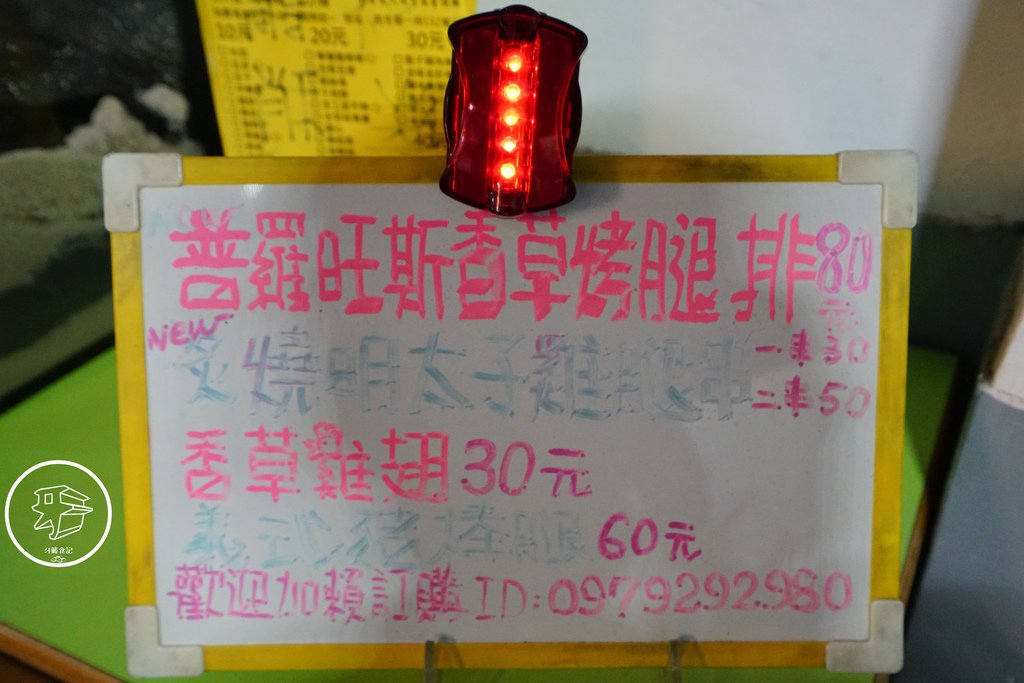 10元 20元 30元
普羅旺斯香草烤腿排80元
NEW
炙燒明太子雞腿串 一串30
二串50
香草雞翅30元
60元
歡迎加賴訂購ID:0979292980
牙籤食記